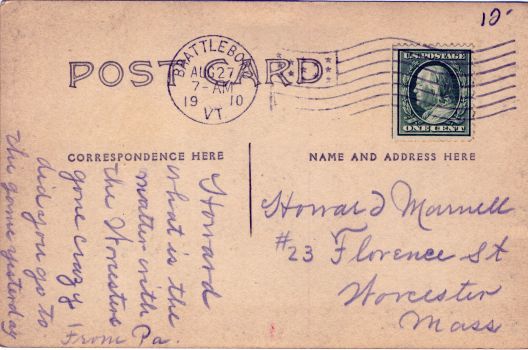 10¢
POST CARD
BRATTLEBORO
AUG 27
7-AM
19 10
VT.
U.S. POSTAGE
ONE CENT
CORRESPONDENCE HERE
NAME AND ADDRESS HERE
Howard
what is the
matter with
the Worcesters
gone crazy
did you go to
the game yesterday
From Pa.
Howard Marnell
#23 Florence St
Worcester
Mass